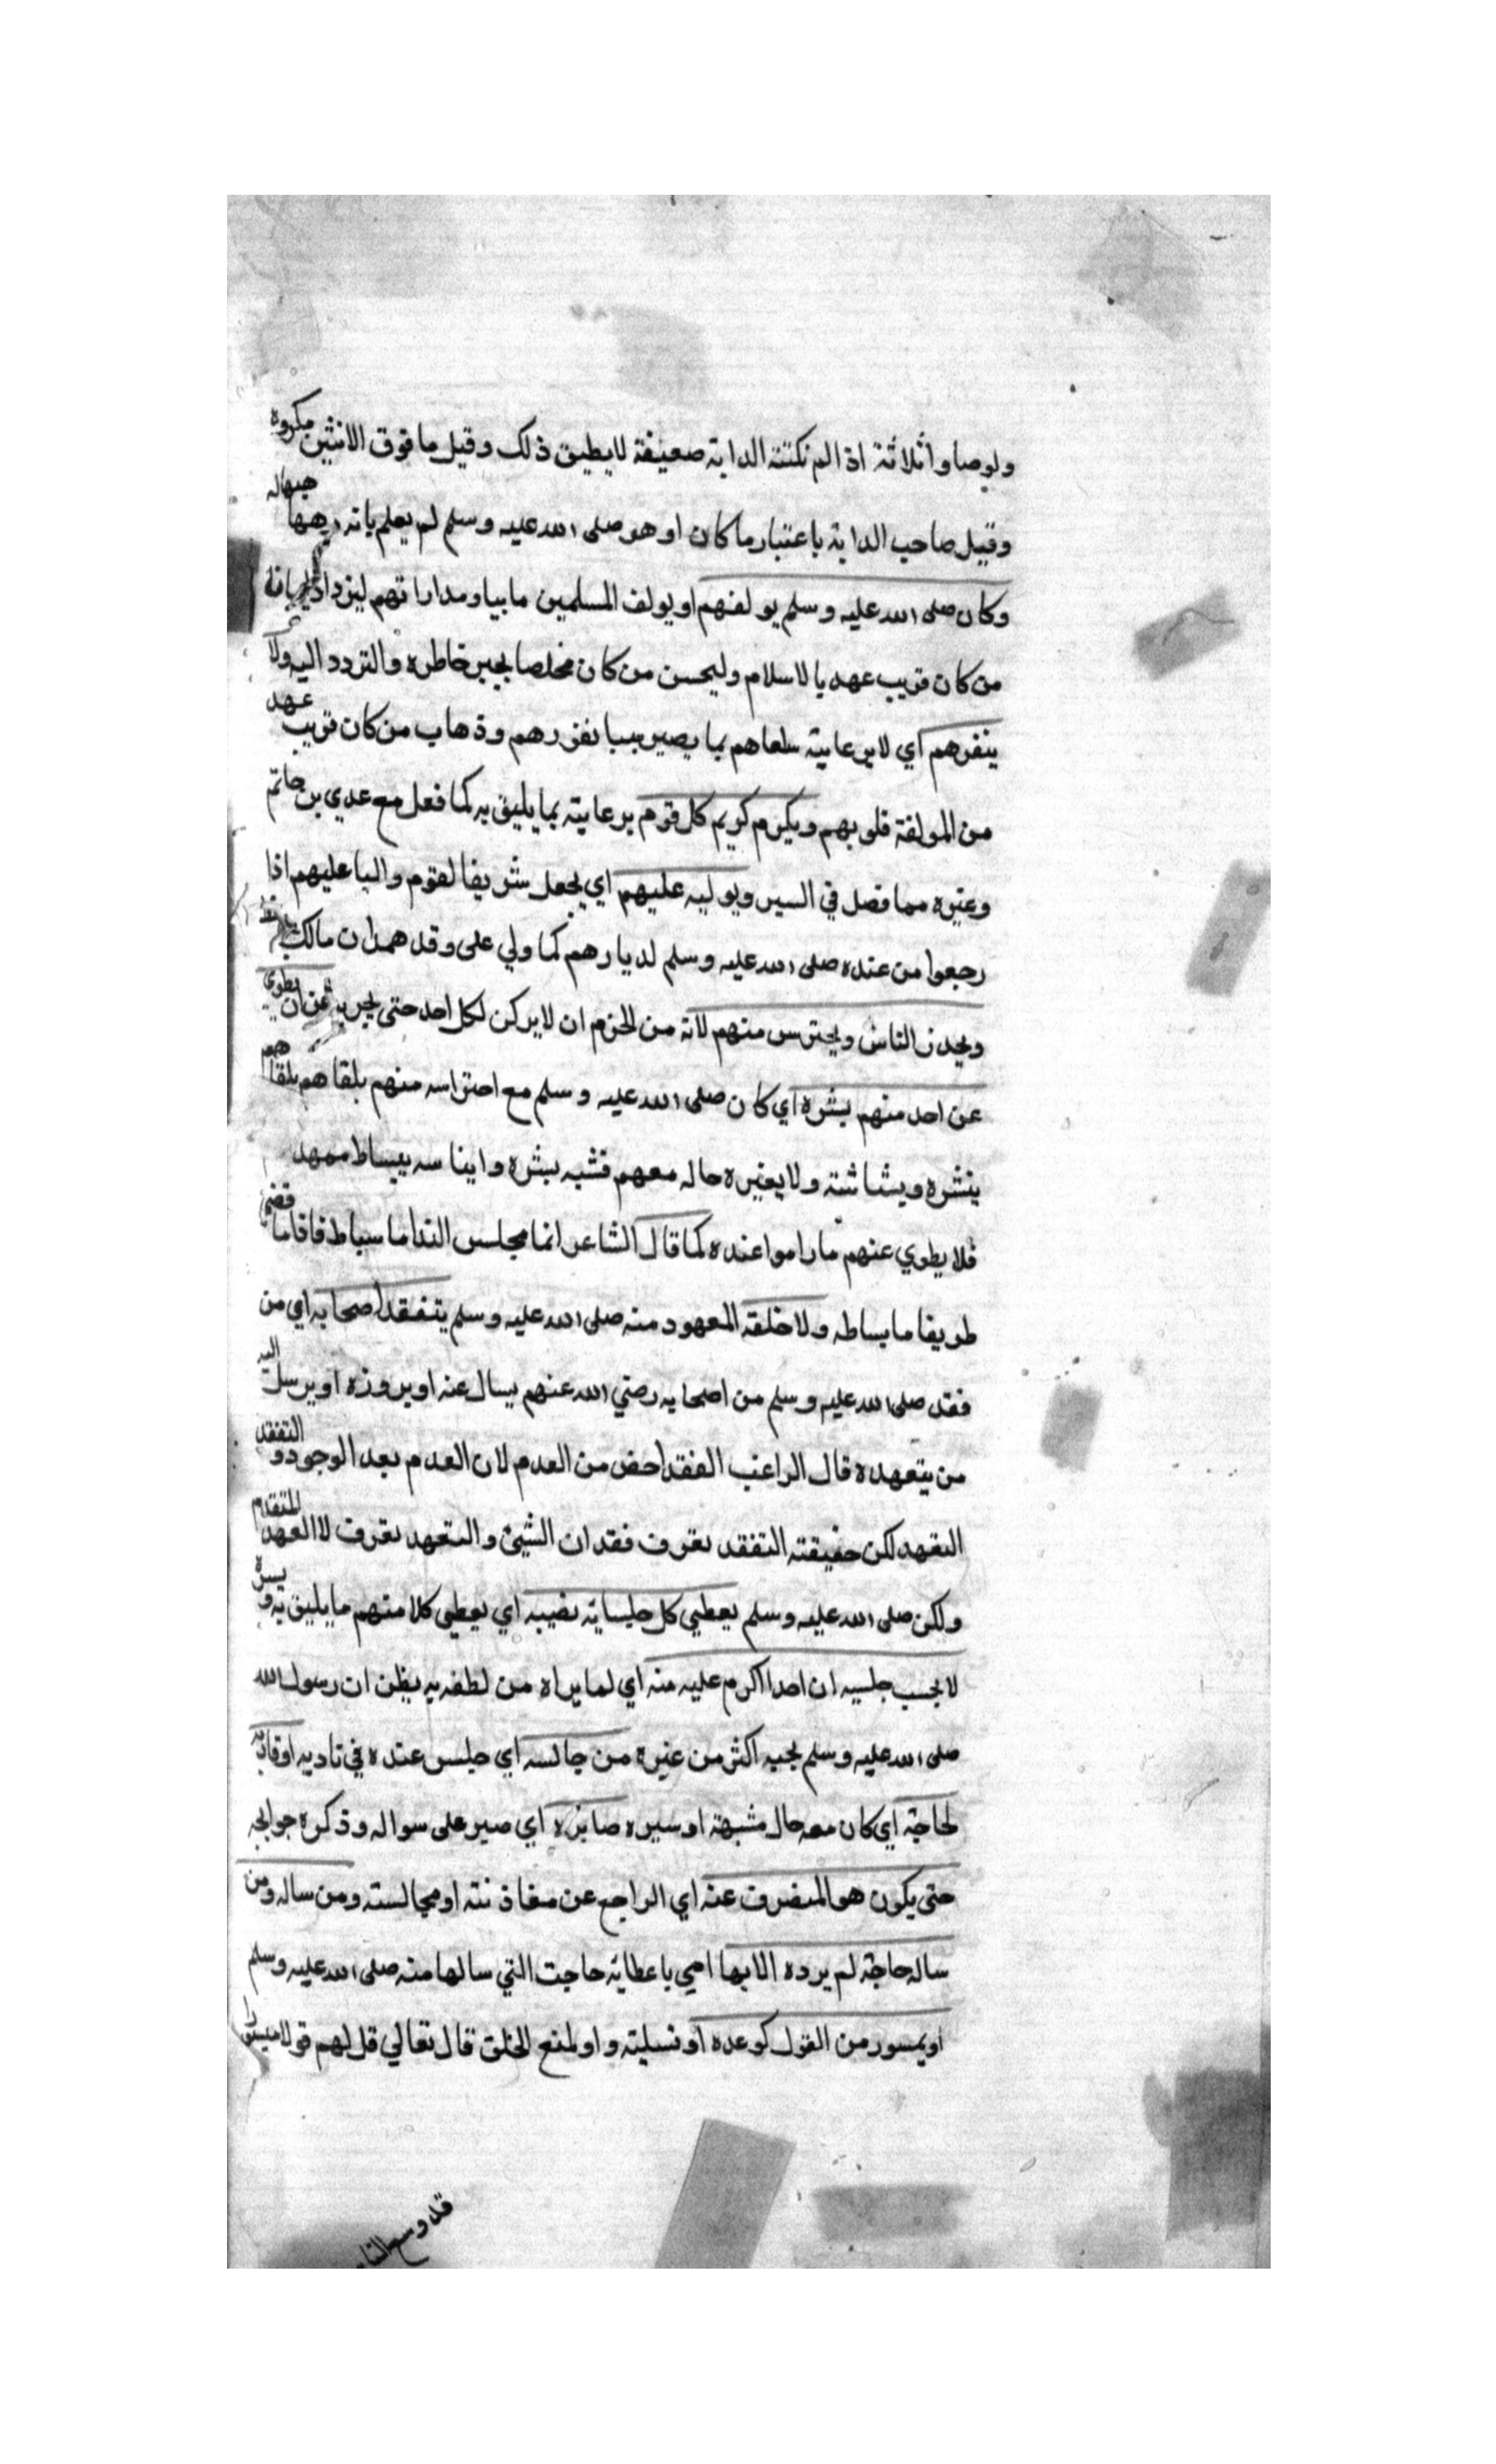 ولوصاوا ثلاثة اذا لم تكتنه الدابة ضعيفة لا يطيق ذلك وقيل ما فوق الاثنين مكروه
وقيل صاحب الدابة باعتبار ما كان او هو صلى الله عليه وسلم لم يعلم بانه
وكان صلى الله عليه وسلم يولفهم او يولف المسلمين ومداراتهم ليزداد
من كان قريب عهد بالاسلام وليحسن من كان مخلصا بجبر خاطره والتردد اليه ولا
ينفرهم اي لا يرعايته بما يصير سببا نفورهم وذهاب من كان قريب عهد
من المولفة قلوبهم ويكرم كريم كل قوم برعايته بما يليق به كما فعل مع عدي بن حاتم
وغيره مما فصل في السير ويوليه عليهم اي يجعل شريفا لقوم واليا عليهم اذا
رجعوا من عنده صلى الله عليه وسلم لديارهم كما ولي على وفد همدان مالك
ويحذر الناس ويحترس منهم لانه من الحزم ان لا يركن لكل احد حتى يجربه من ان يطوي
عن احد منهم بشره اي كان صلى الله عليه وسلم مع احتراسه منهم يلقاهم بلقا
بنشره وبشاشته ولا يغيره حاله معهم فشبه بشره وايناسه ببساط ممهد
فلا يطوي عنهم ما راموا عنده كما قال الشاعر انما مجلس النداما بساط فاذا ما قضي
طويفا ما بساطه ولا خلقه المعهود منه صلى الله عليه وسلم يتفقد اصحابه اي من
فقد صلى الله عليه وسلم من اصحابه رضي الله عنهم يسال عنه او يروزه او يرسل اليه
من يتعهده قال الراغب الفقد اخص من العدم لان العدم بعد الوجود والتفقد
التعهد لكن حقيقته التفقد تعرف فقدان الشيئ والتعهد تعرف لا العهد المتقدم
ولكن صلى الله عليه وسلم يعطي كل جلسايه نصيبه اي يعطي كلا منهم ما يليق به و
لا يحسب جليسه ان احدا اكرم عليه منه اي لما يراه من لطفه به يظن ان رسول الله
صلى الله عليه وسلم يحبه اكثر من غيره من جالسه اي جلس عنده في ناديه
لحاجة اي كان معه حال مشبهة او سيره صابره اي صبر على سواله وذكره حوايجه
حتى يكون هو المنصرف عنه اي الراجع عن او مجالسته ومن ساله ومن
ساله حاجة لم يرده الا بها اي باعطايه حاجت التي سالها منه صلى الله عليه وسلم
او بميسور من القول كوعده او تسليته و او لمنع الخلق قال تعالي قل لهم قولا ميسورا
قد وسع الناس